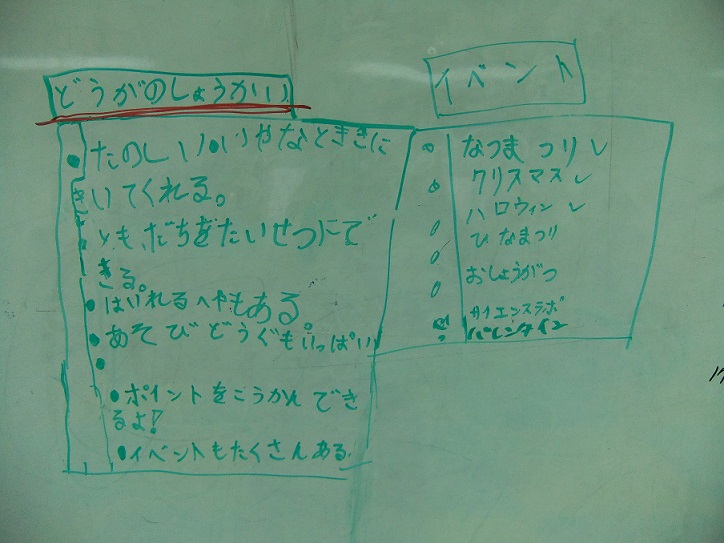 どうがのしょうかい
・たのしい・いやなときに
きいてくれる。
・ともだちをたいせつにで
きる。
・はいれるへやもある
・あそびどうぐもいっぱい。
・ポイントをこうかんでき
るよ!
・イベントもたくさんある。
イベント
なつまつり✓
クリスマス✓
ハロウィン✓
ひなまつり
おしょうがつ
サイエンスラボ
バレンタイン